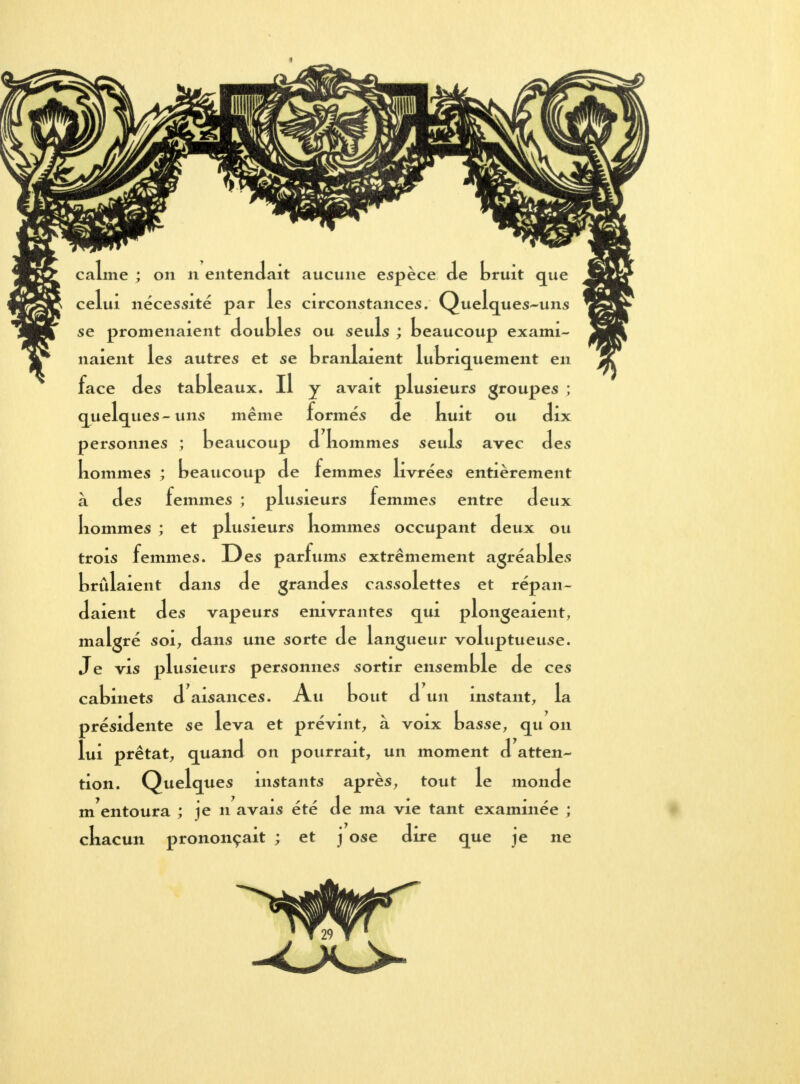 calme ; on n'entendait aucune espèce de bruit que
celui nécessité par les circonstances. Quelques-uns
se promenaient doubles ou seuls ; beaucoup exami-
naient les autres et se branlaient lubriquement en
face des tableaux. Il y avait plusieurs groupes ;
quelques-uns même formés de huit ou dix
personnes ; beaucoup d'hommes seuls avec des
hommes ; beaucoup de femmes livrées entièrement
à des femmes ; plusieurs femmes entre deux
hommes ; et plusieurs hommes occupant deux ou
trois femmes. Des parfums extrêmement agréables
brûlaient dans de grandes cassolettes et répan-
daient des vapeurs enivrantes qui plongeaient,
malgré soi, dans une sorte de langueur voluptueuse.
Je vis plusieurs personnes sortir ensemble de ces
cabinets d'aisances. Au bout d'un instant, la
présidente se leva et prévint, à voix basse, qu'on
lui prêtat, quand on pourrait, un moment d'atten-
tion. Quelques instants après, tout le monde
m'entoura ; je n'avais été de ma vie tant examinée ;
chacun prononçait ; et j'ose dire que je ne
29